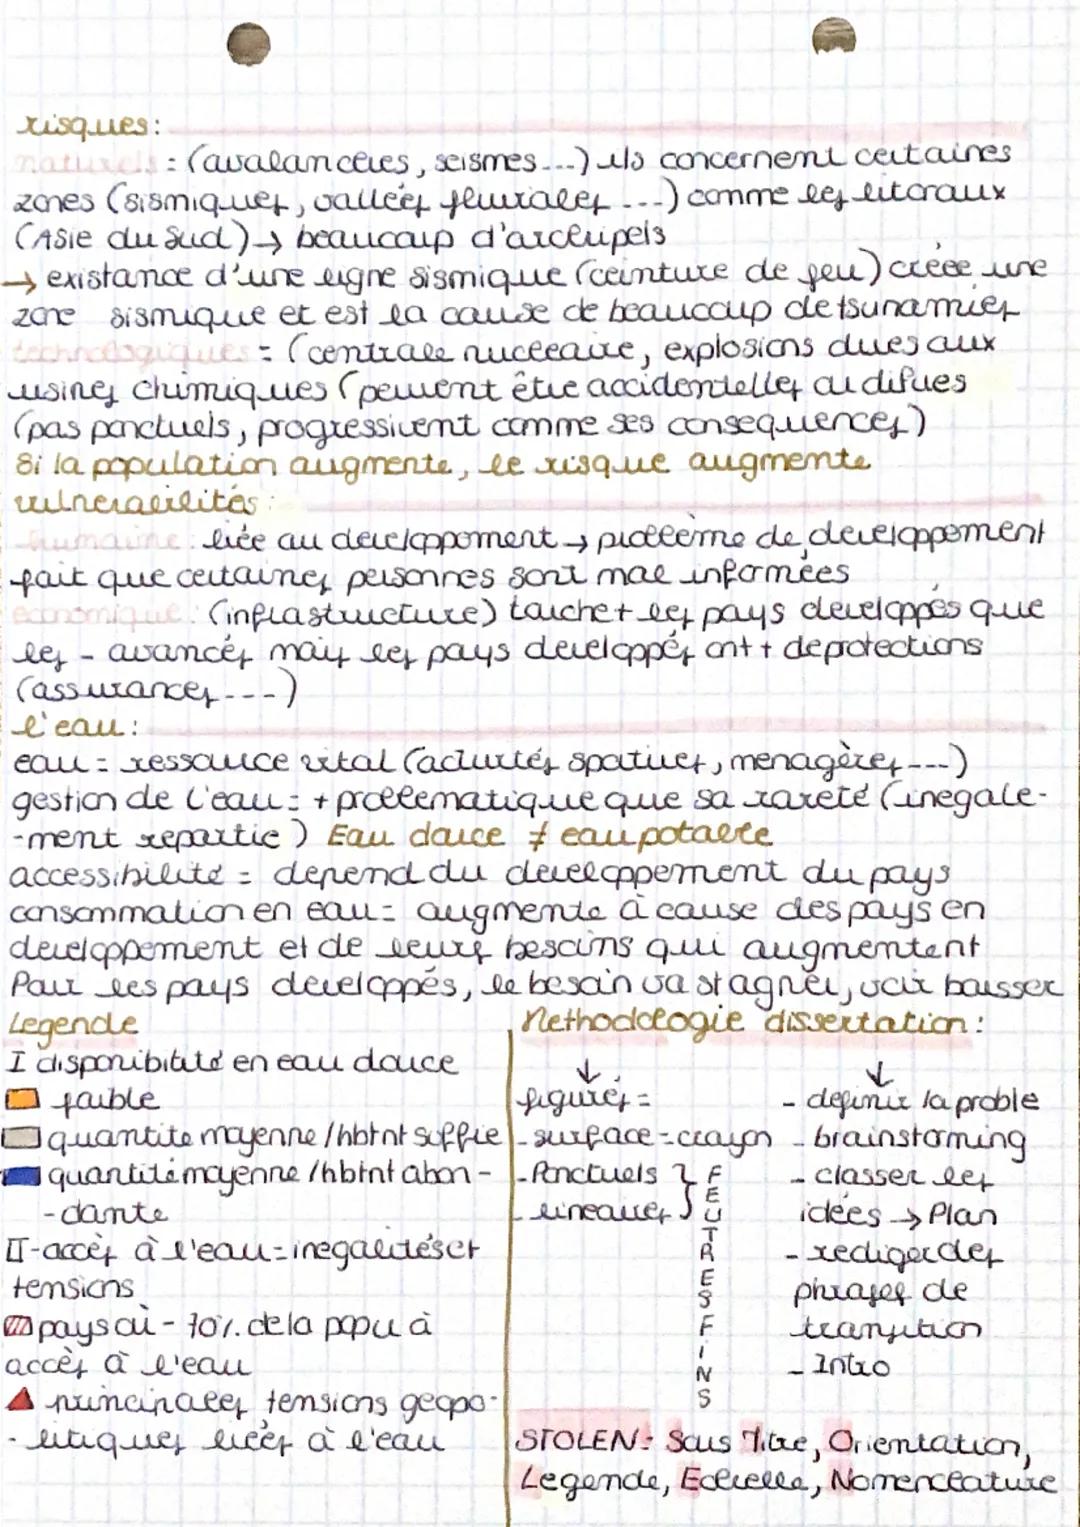 risques:
naturels = (avalanches, seismes...) ils concernent certaines
zones (sismiques, vallées fluviales ...) comme les litoraux
(Asie du Sud) → beaucoup d'archipels
→ existance d'une ligne sismique (ceinture de feu) créée une
zone sismique et est la cause de beaucoup de tsunamies
technologiques = (centrale nucleaire, explosions dues aux
usines chimiques (peuvent être accidentelles ou difues
(pas ponctuels, progressivent comme ses consequences)
Si la population augmente, le risque augmente
vulnerabilités:
humaine: liée au developpement → problème de developpement
fait que certaines personnes sont mal informées
economique: (infrastructure) touche + les pays developpés que
les - avancés mais les pays developpés ont + de protections
(assurances...)
l'eau:
eau = ressource vital (activités spatives, menagères...)
gestion de l'eau = + problematique que sa rareté (inegale-
-ment repartie) Eau douce ≠ eau potable
accessibilité = depend du developpement du pays
consommation en eau = augmente à cause des pays en
developpement et de leurs besoins qui augmentent
Pour les pays developpés, le besoin va stagner, voir baisser
Legende
I disponibilité en eau douce
faible
quantite moyenne/hbtnt suffie
quantité moyenne/hbtnt abon-
-dante
II-accès à l'eau = inegalités et
tensions
pays où - 70% de la popu à
accès à l'eau
principales tensions geopo-
-litiques liées à l'eau
Methodologie dissertation:
↓ ↓
figurés =
- surface = crayon
- Ponctuels
- lineaires
FEUTRES FINS
- definir la proble
- brainstorming
- classer les
idées → Plan
- rediger des
phrases de
transition
- Intro
STOLEN = Sous Titre, Orientation,
Legende, Echelle, Nomenclature